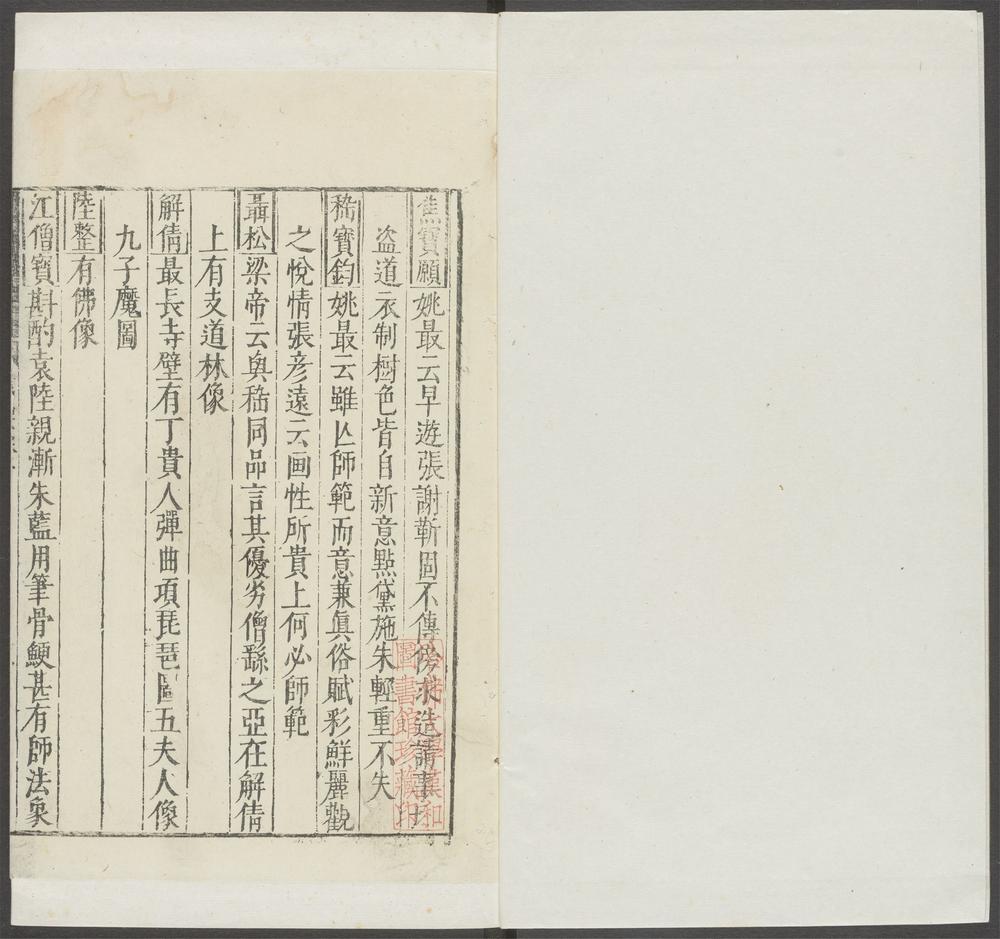 焦寶願姚最云早遊張謝靳固不傳傍求造請事
盗道衣制樹色皆自新意點黛施朱輕重不失
嵇寶鈞姚最云雖亾師範而意兼眞俗賦彩鮮麗觀
之悅情張彦遠云画性所貴上何必師範
聶松梁帝云與嵇同品言其優劣僧繇之亞在解倩
上有支道林像
解倩最長寺壁有丁貴人彈曲項琵琶圖五夫人像
九子魔圖
陸整有佛像
江僧寶斟酌袁陸親漸朱藍用筆骨鯁甚有師法象
哈佛大學漢和
圖書館珍藏印